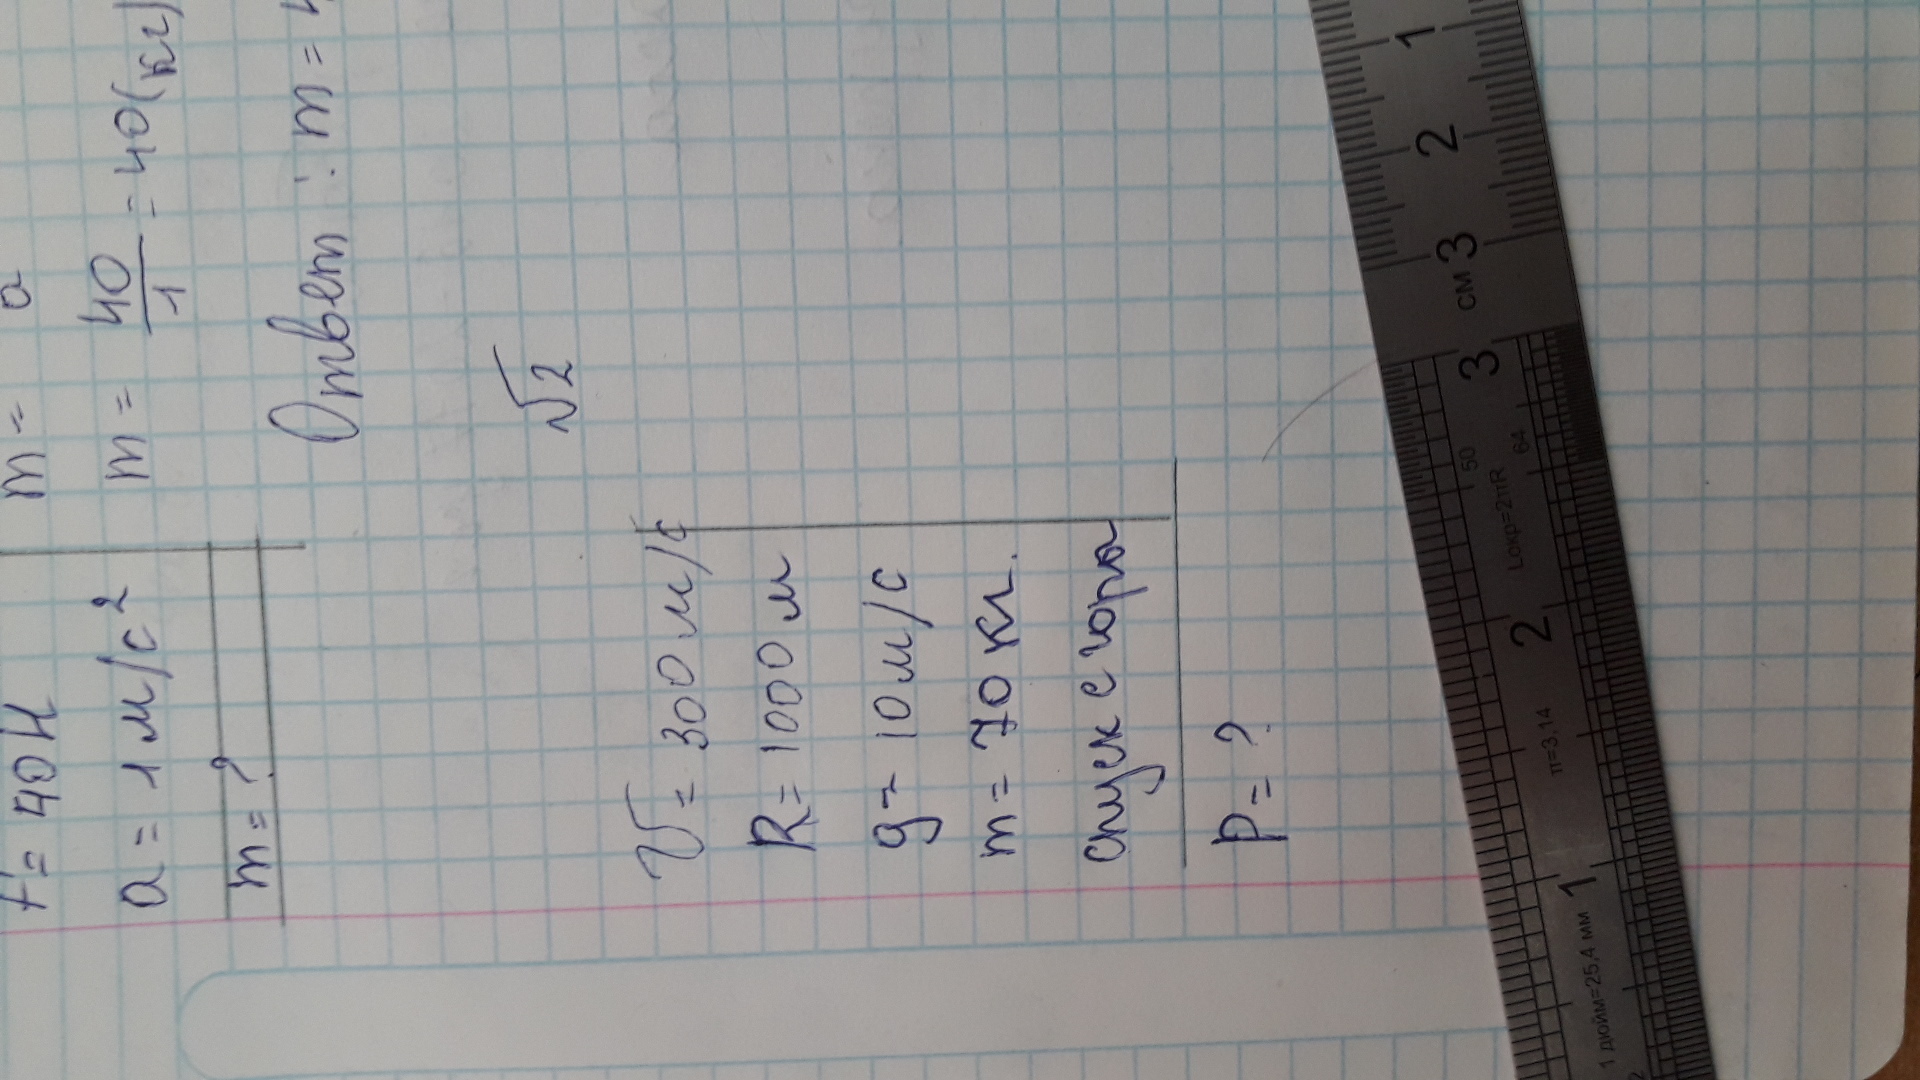 F = 40 Н
a = 1 м/с²
m = ?
m = a
m = 40/1 = 40 (кг)
Ответ: m = 4
√2
V = 300 м/с
R = 1000 м
g = 10 м/с
m = 70 кг.
спуск с горы
P = ?
1 2 3 см
1 2 3
1 дюйм=25,4 мм π=3,14 Lокр=2πR
50
64